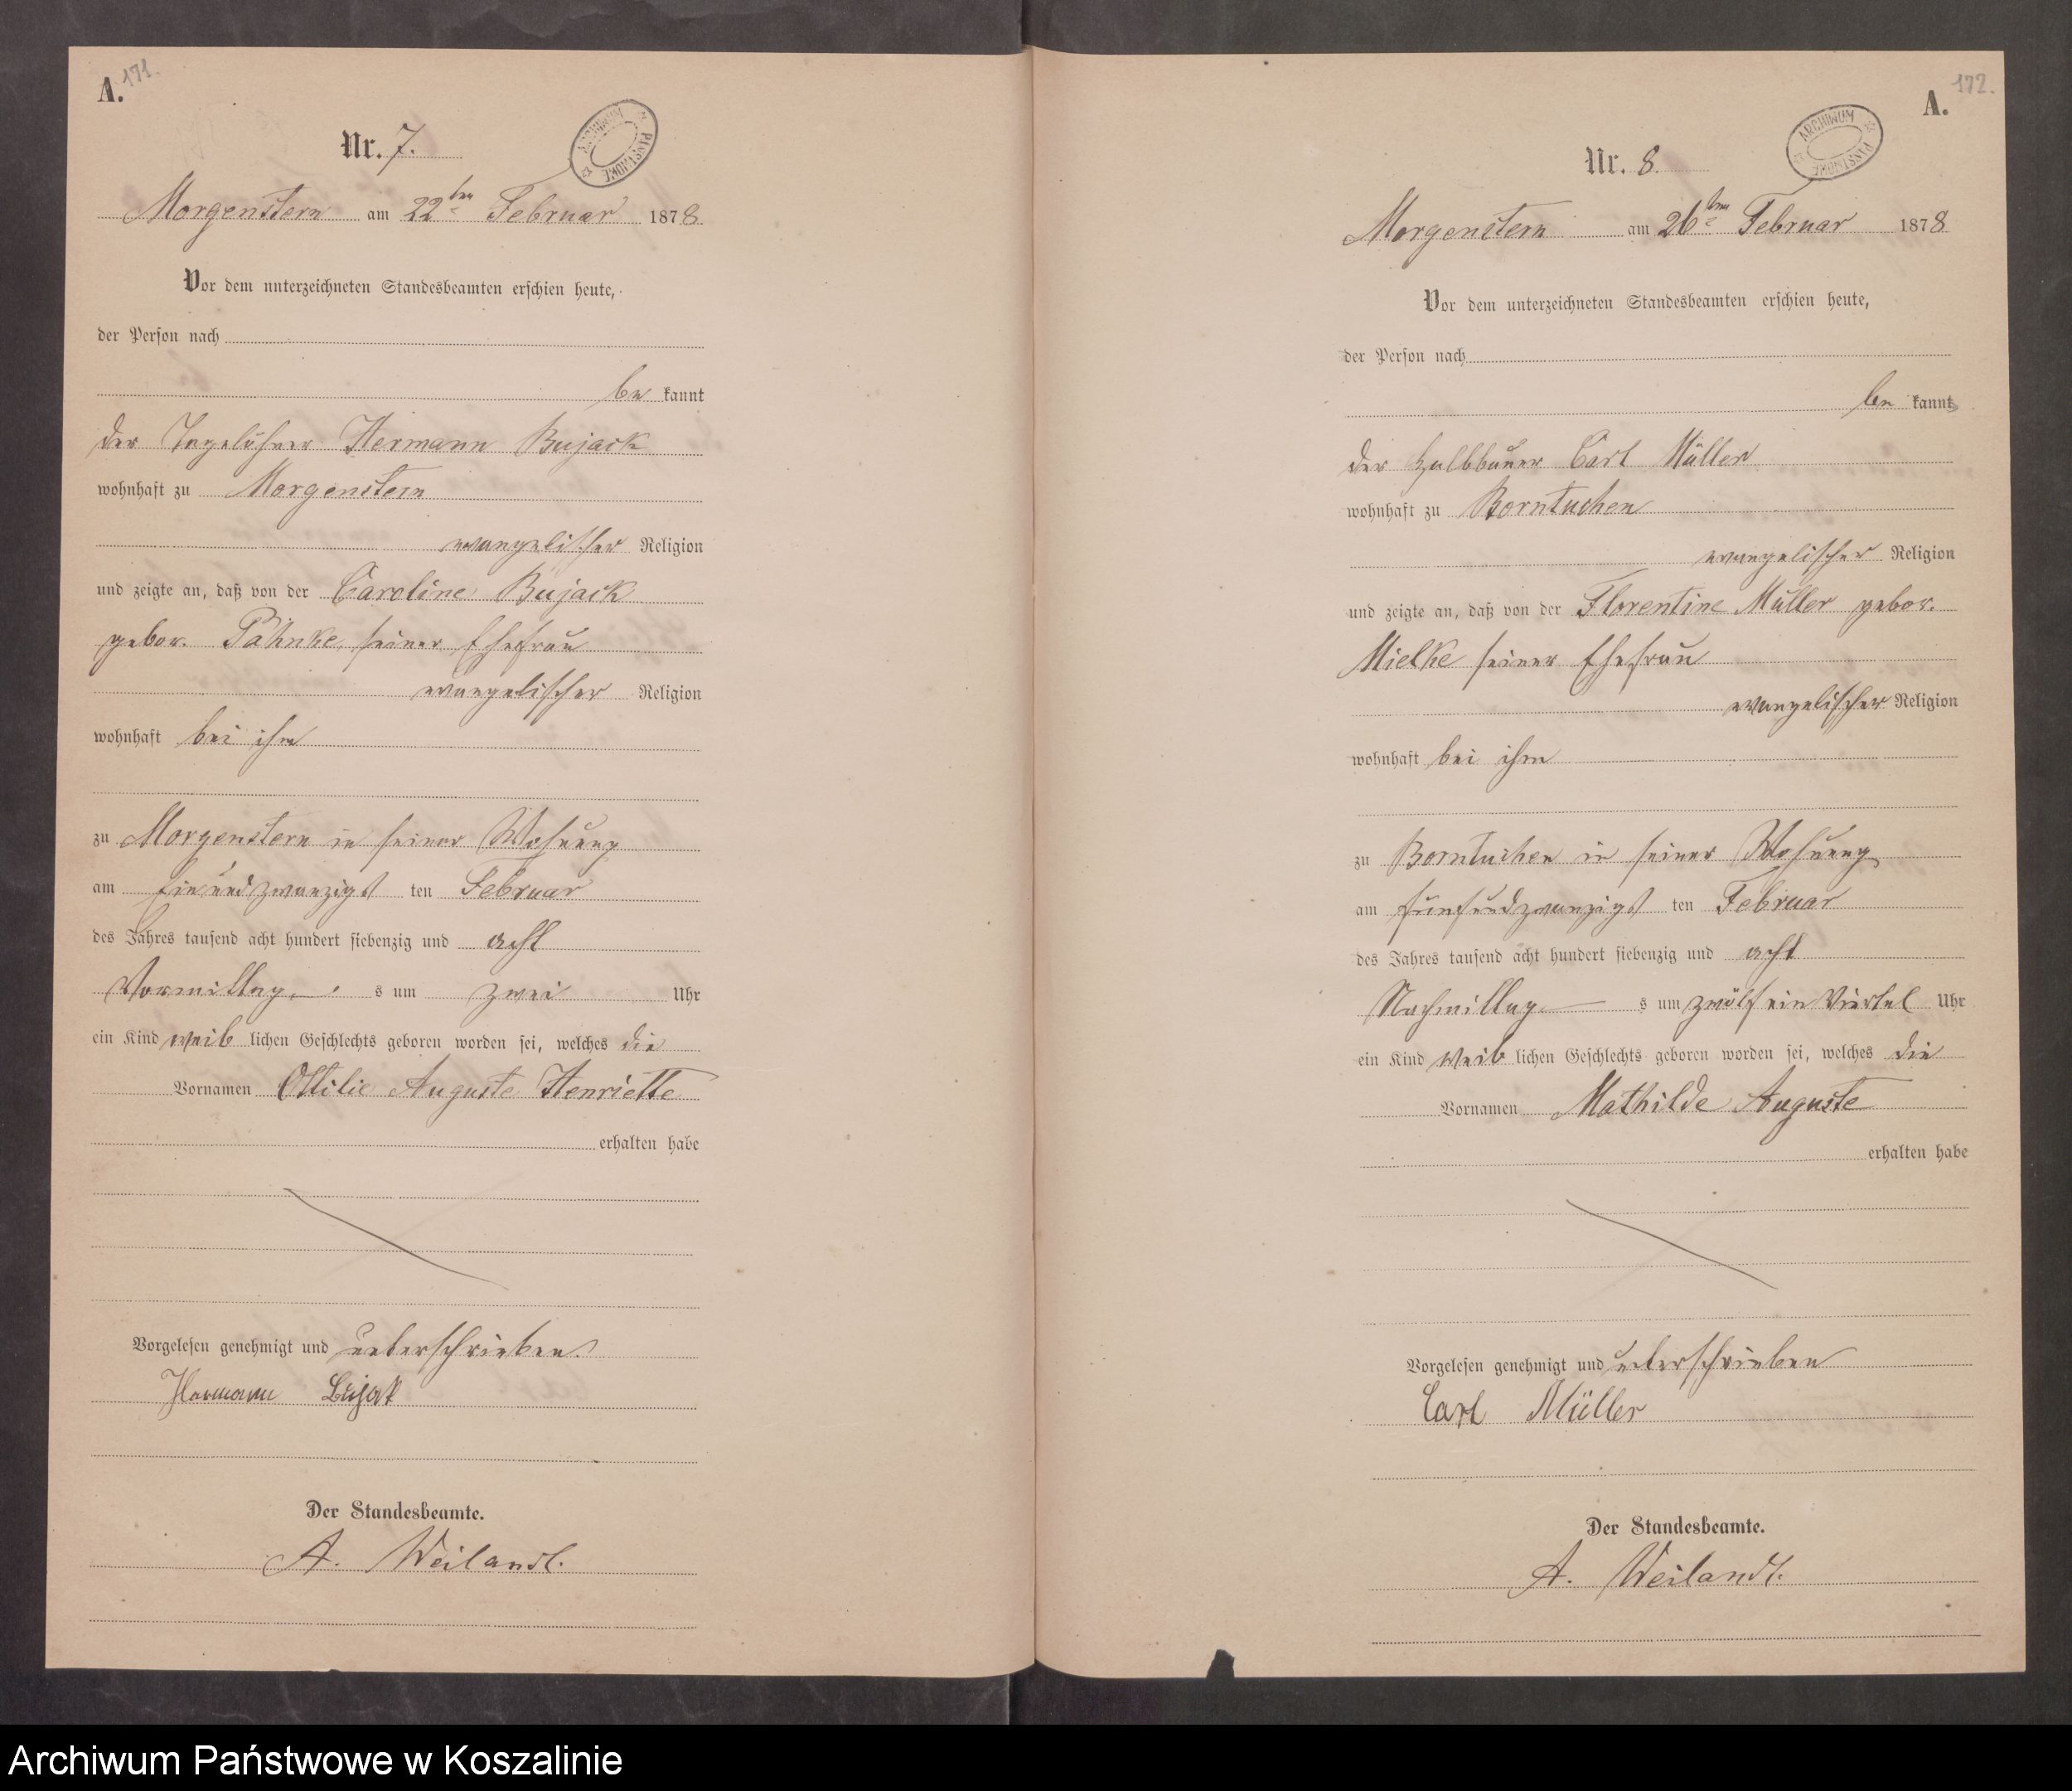 A. 171.
ARCHIWUM PAŃSTWOWE
Nr. 7.
Morgenstern am 22ten Februar 1878
Vor dem unterzeichneten Standesbeamten erschien heute,
der Person nach
be kannt
der Tagelöhner Hermann Bujack
wohnhaft zu Morgenstern
evangelischer Religion
und zeigte an, daß von der Caroline Bujack
gebor. Pähnke, seiner Ehefrau
evangelischer Religion
wohnhaft bei ihm
zu Morgenstern in seiner Wohnung
am einundzwanzigst ten Februar
des Jahres tausend acht hundert siebenzig und acht
Vormittag s um zwei Uhr
ein Kind weib lichen Geschlechts geboren worden sei, welches die
Vornamen Ottilie Auguste Henriette
erhalten habe
Vorgelesen genehmigt und unterschrieben
Hermann Bujak
Der Standesbeamte.
A. Weilandt.
A. 172.
ARCHIWUM PAŃSTWOWE
Nr. 8.
Morgenstern am 26ten Februar 1878
Vor dem unterzeichneten Standesbeamten erschien heute,
der Person nach
be kannt
der Halbbauer Carl Müller
wohnhaft zu Borntuchen
evangelischer Religion
und zeigte an, daß von der Florentine Müller gebor.
Mielke seiner Ehefrau
evangelischer Religion
wohnhaft bei ihm
zu Borntuchen in seiner Wohnung
am fünfundzwanzigst ten Februar
des Jahres tausend acht hundert siebenzig und acht
Nachmittag s um zwölf ein Viertel Uhr
ein Kind weib lichen Geschlechts geboren worden sei, welches die
Vornamen Mathilde Auguste
erhalten habe
Vorgelesen genehmigt und unterschrieben
Carl Müller
Der Standesbeamte.
A. Weilandt.
Archiwum Państwowe w Koszalinie